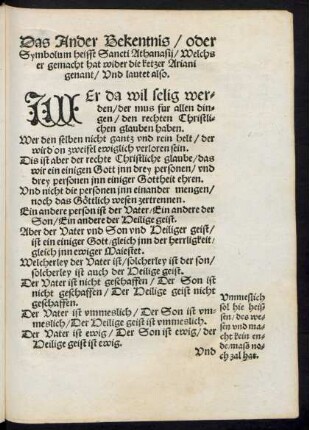 Das Ander Bekentnis / oder
Symbolum heisst Sancti Athanasij / Welchs
er gemacht hat wider die ketzer Ariani
genant / Vnd lautet also.
WEr da wil selig wer-
den / der mus fur allen din-
gen / den rechten Christli-
chen glauben haben.
Wer den selben nicht gantz vnd rein helt / der
wird on zweifel ewiglich verloren sein.
Dis ist aber der rechte Christliche glaube / das
wir ein einigen Gott jnn drey personen / vnd
drey personen jnn einiger Gottheit ehren.
Vnd nicht die personen jnn einander mengen /
noch das Göttlich wesen zertrennen.
Ein andere person ist der Vater / Ein andere der
Son / Ein andere der Heilige geist.
Aber der Vater vnd Son vnd Heiliger geist /
ist ein einiger Gott / gleich jnn der herrligkeit /
gleich jnn ewiger Maiestet.
Welcherley der Vater ist / solcherley ist der son /
solcherley ist auch der Heilige geist.
Der Vater ist nicht geschaffen / Der Son ist
nicht geschaffen / Der Heilige geist nicht
geschaffen.
Der Vater ist vnmeslich / Der Son ist vn-
meslich / Der Heilige geist ist vnmeslich.
Der Vater ist ewig / Der Son ist ewig / der
Heilige geist ist ewig.
Vnd
Vnmeslich
sol hie heis-
sen / des we-
sen vnd ma-
cht kein en-
de / mass no-
ch zal hat.